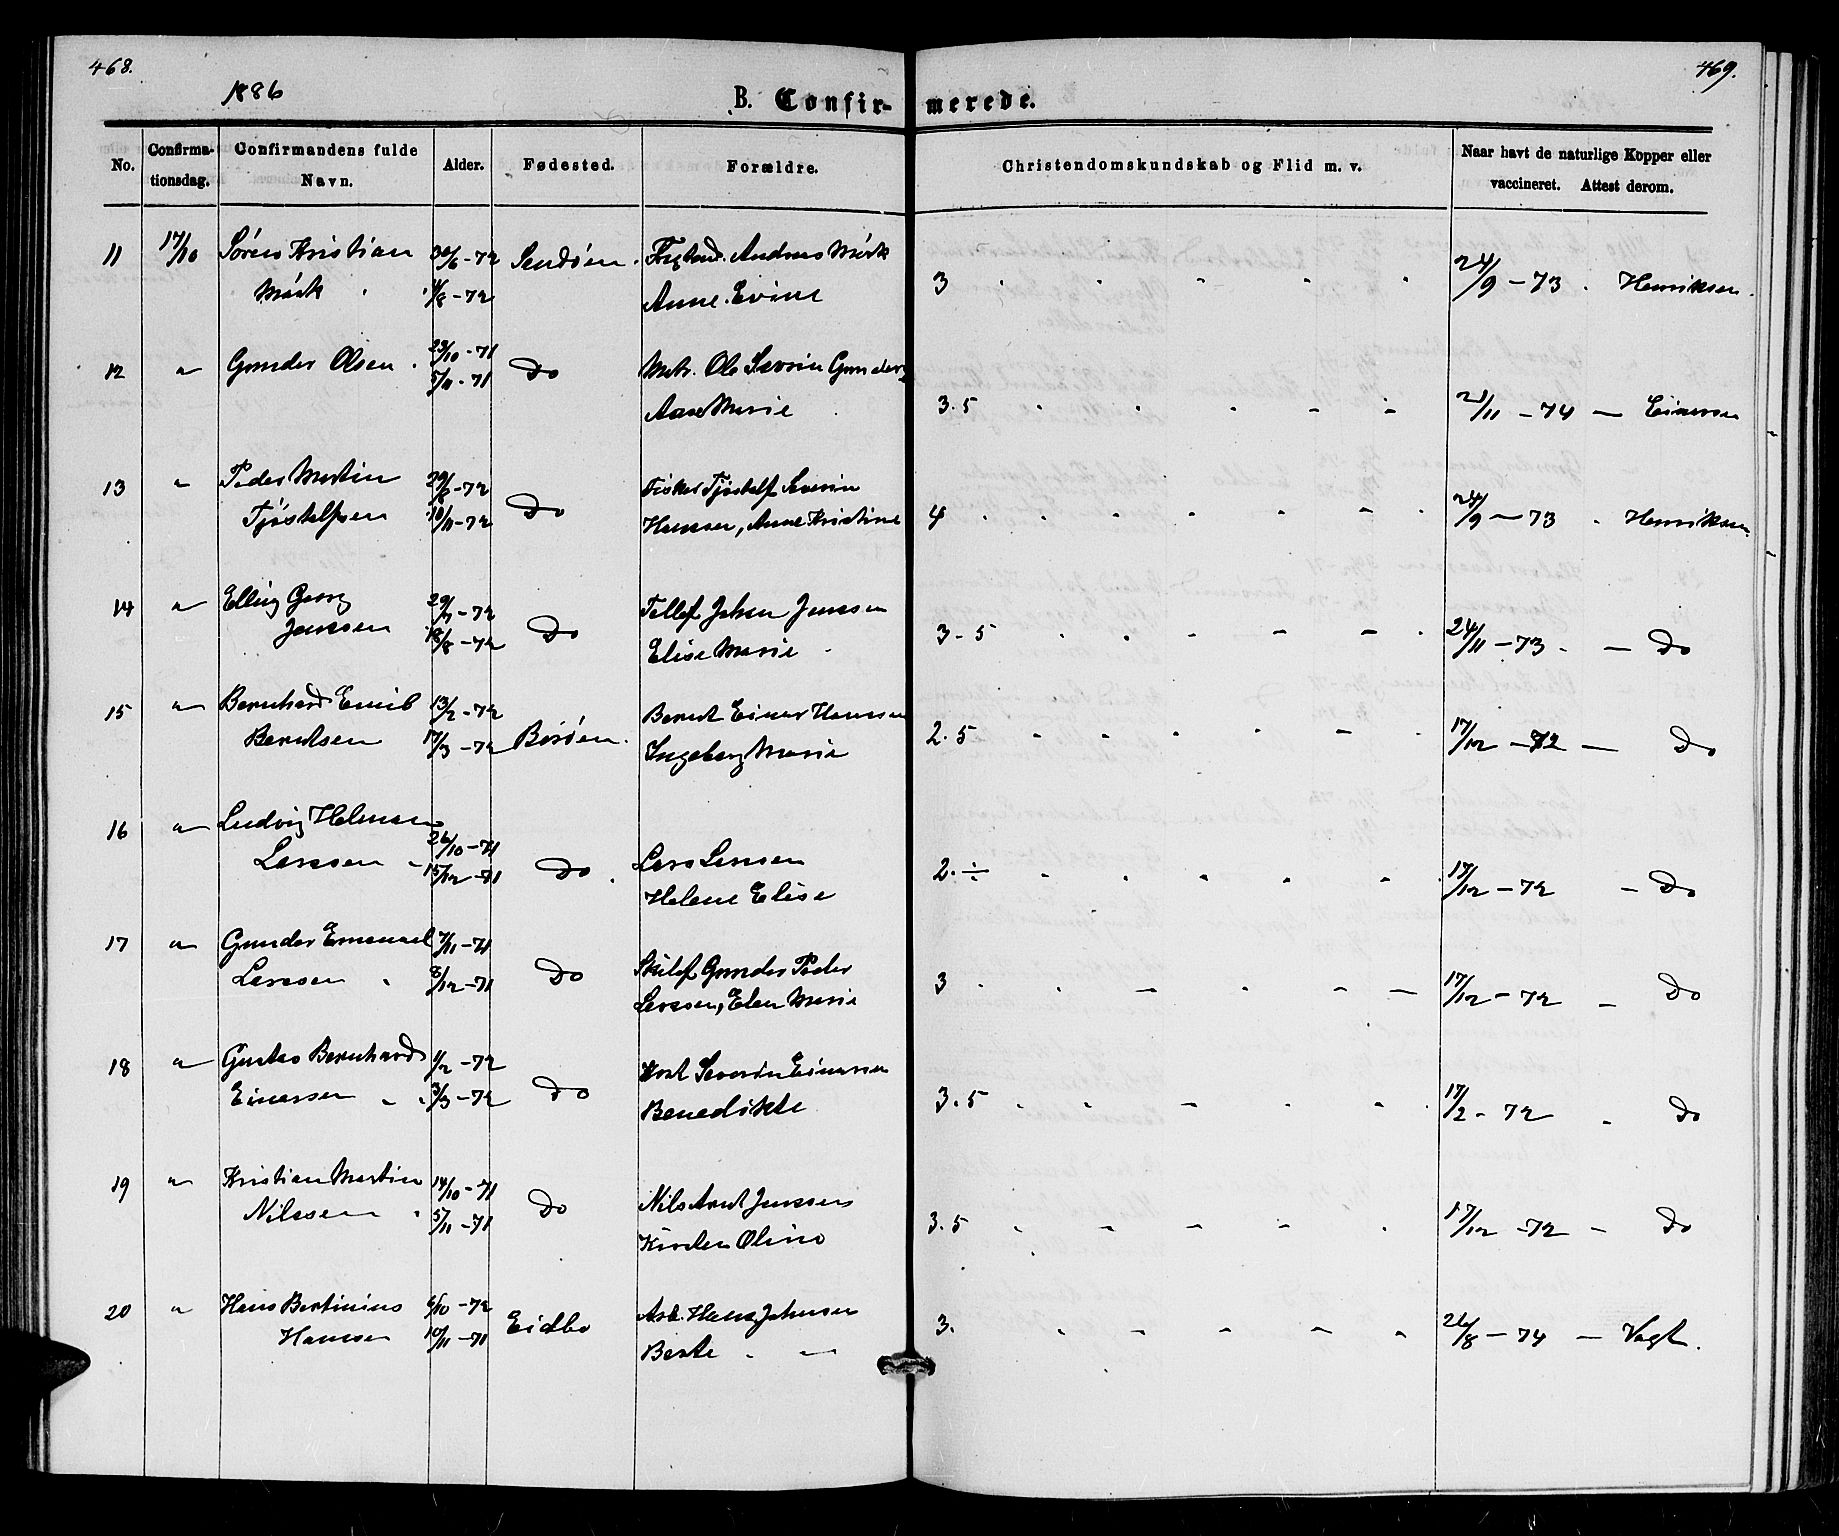 468.
469.
1886
B. Confir-merede.
No. Confirma-tionsdag. Confirmandens fulde Navn. Alder. Fødested. Forældre. Christendomskundskab og Flid m. v. Naar havt de naturlige Kopper eller vaccineret. Attest derom.
11 17/10 Søren Kristian 30/6-72 Sandöen. Andreas Mörk
Mörk 4/8-72 Anne Evine 3 24/9-73. Henriksen.
12 " Gunder Olsen. 23/10-71 Do Mtr. Ole Severin Gunders
5/11-71 Aase Marie 3.5 21/11-74 - Einersen
13 " Peder Martin 29/8-72 Do Fisker Tjöstelf Severin
Tjöstelfsen 10/11-72 Hansen, Anne Kristine 4 24/9-73. Henriksen.
14 " Elling Georg 29/7-72 Tellef Johan Jensen
Jenssen 18/8-72 Do Elise Marie 3-5 24/11-73. - Do
15 " Bernhard Emil 13/2-72 Berent Einer Hanssen
Berntsen 17/3-72 Boröen. Ingeborg Marie 2.5 17/12-72 - Do
16 " Ludvig Helmer 26/10-71
Larssen 15/12-71 Do Lars Larssen
Helene Elise 2.÷ 17/12-72 - Do
17 " Gunder Emanuel 7/11-71 Gunder Peder
Larssen 8/12-71 Do Larssen, Elen Marie 3 17/12-72 - Do
18 " Gustav Bernhard 1/2-72 Severin Einersen
Einersen 3/3-72 Do Benedikte 3.5 17/2-72 Do
19 " Kristian Martin 14/10-71 Nils Arnt Jenssen
Nilssen 5/11-71 Do Kirsten Oline 3.5 17/12-72 - Do
20 " Hans Bertinius 6/10-72 Arb. Hans Johnsen
Hanssen 10/11-71 Eidbo Berte 3. 26/8-74 - Vogt.